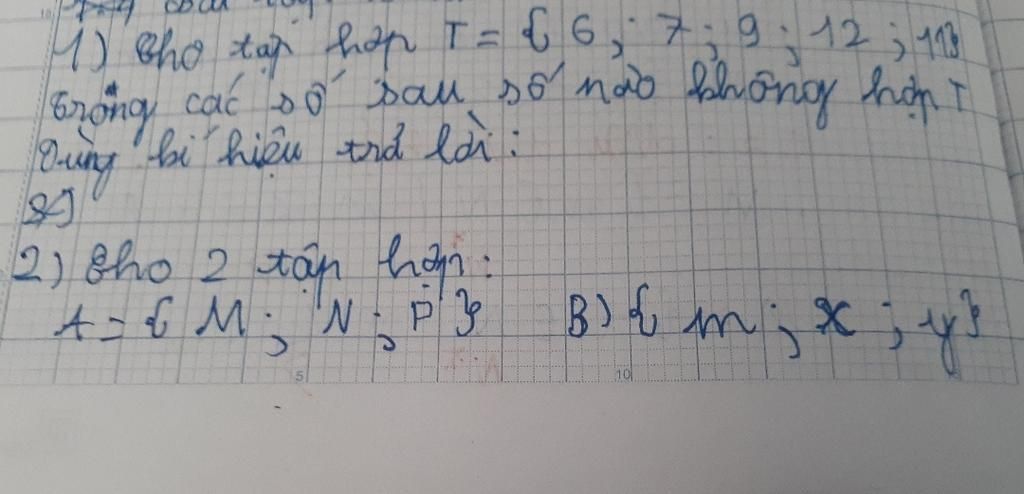 1) Cho tập hợp T = { 6 ; 7 ; 9 ; 12 ; 11}
Trong các số sau số nào không hợp T
Dùng kí hiệu trả lời :
2) Cho 2 tập hợp :
A = { M ; N ; P } B) { m ; x ; y }
5 10